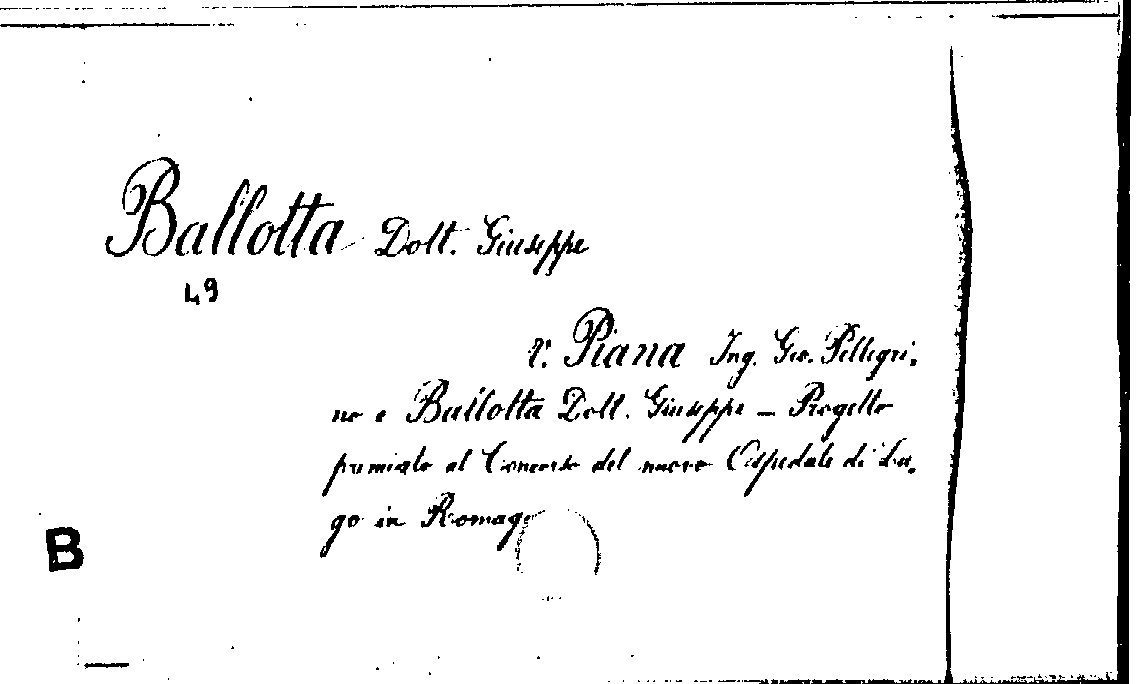 Ballotta Dott. Giuseppe
49
v. Piana Ing. Gio. Pellegri-
no e Ballotta Dott. Giuseppe — Progetto
premiato al Concorso del nuovo Ospedale di Lu-
go in Romag
B